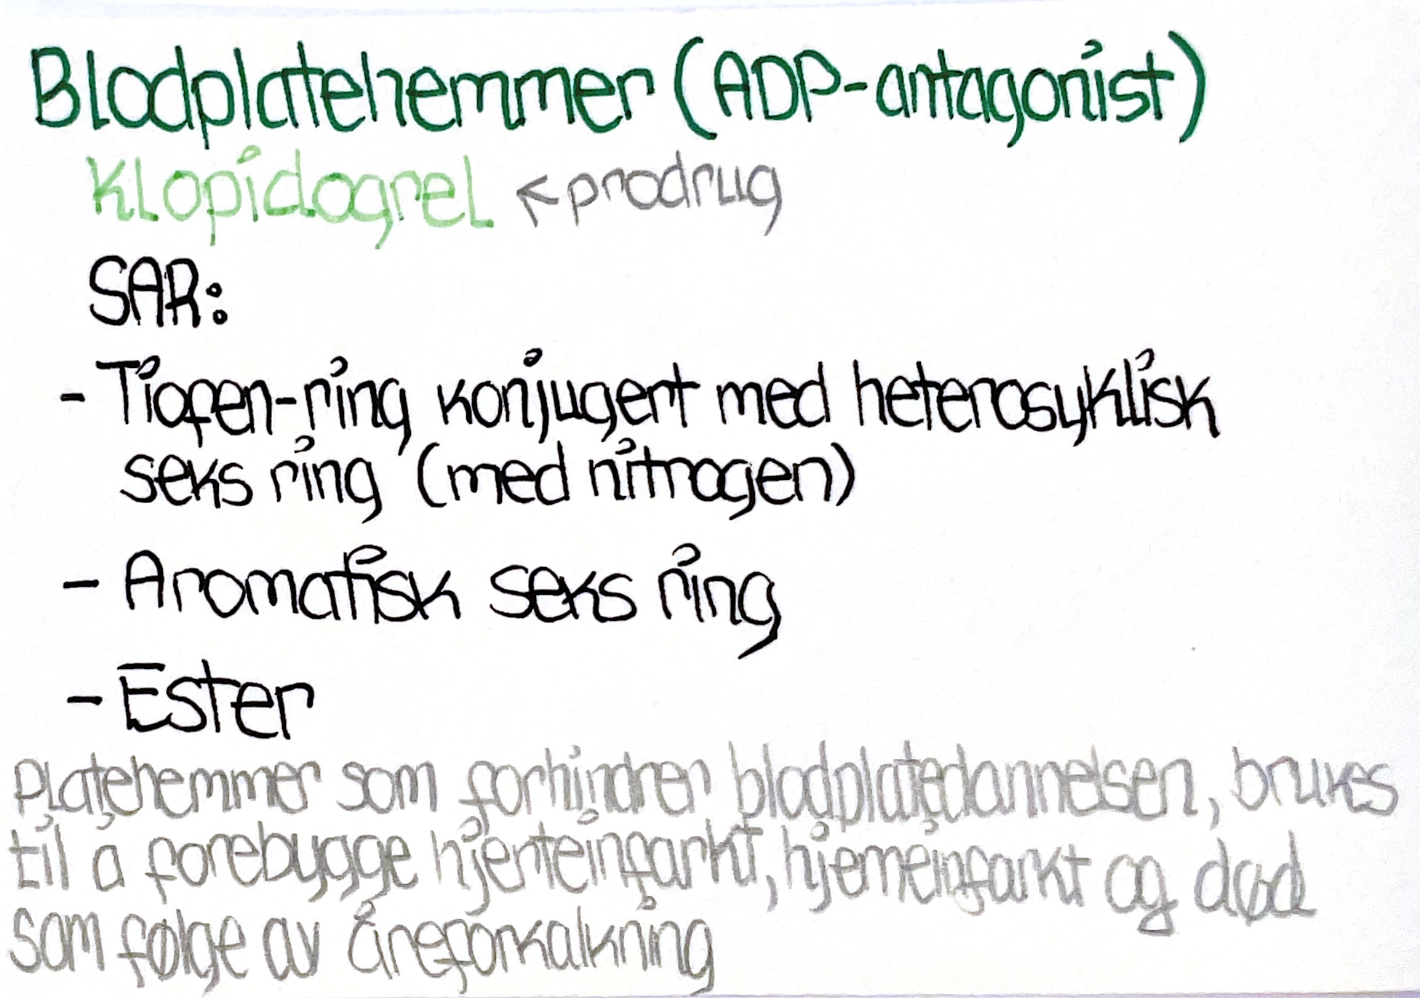 Blodplatehemmer (ADP-antagonist)
Klopidogrel ↖ prodrug
SAR:
- Tiofen-ring konjugert med heterosyklisk
seks ring (med nitrogen)
- Aromatisk seks ring
- Ester
Platehemmer som forhindrer blodplatedannelsen, brukes
til å forebygge hjerteinfarkt, hjerneinfarkt og død
som følge av åreforkalkning